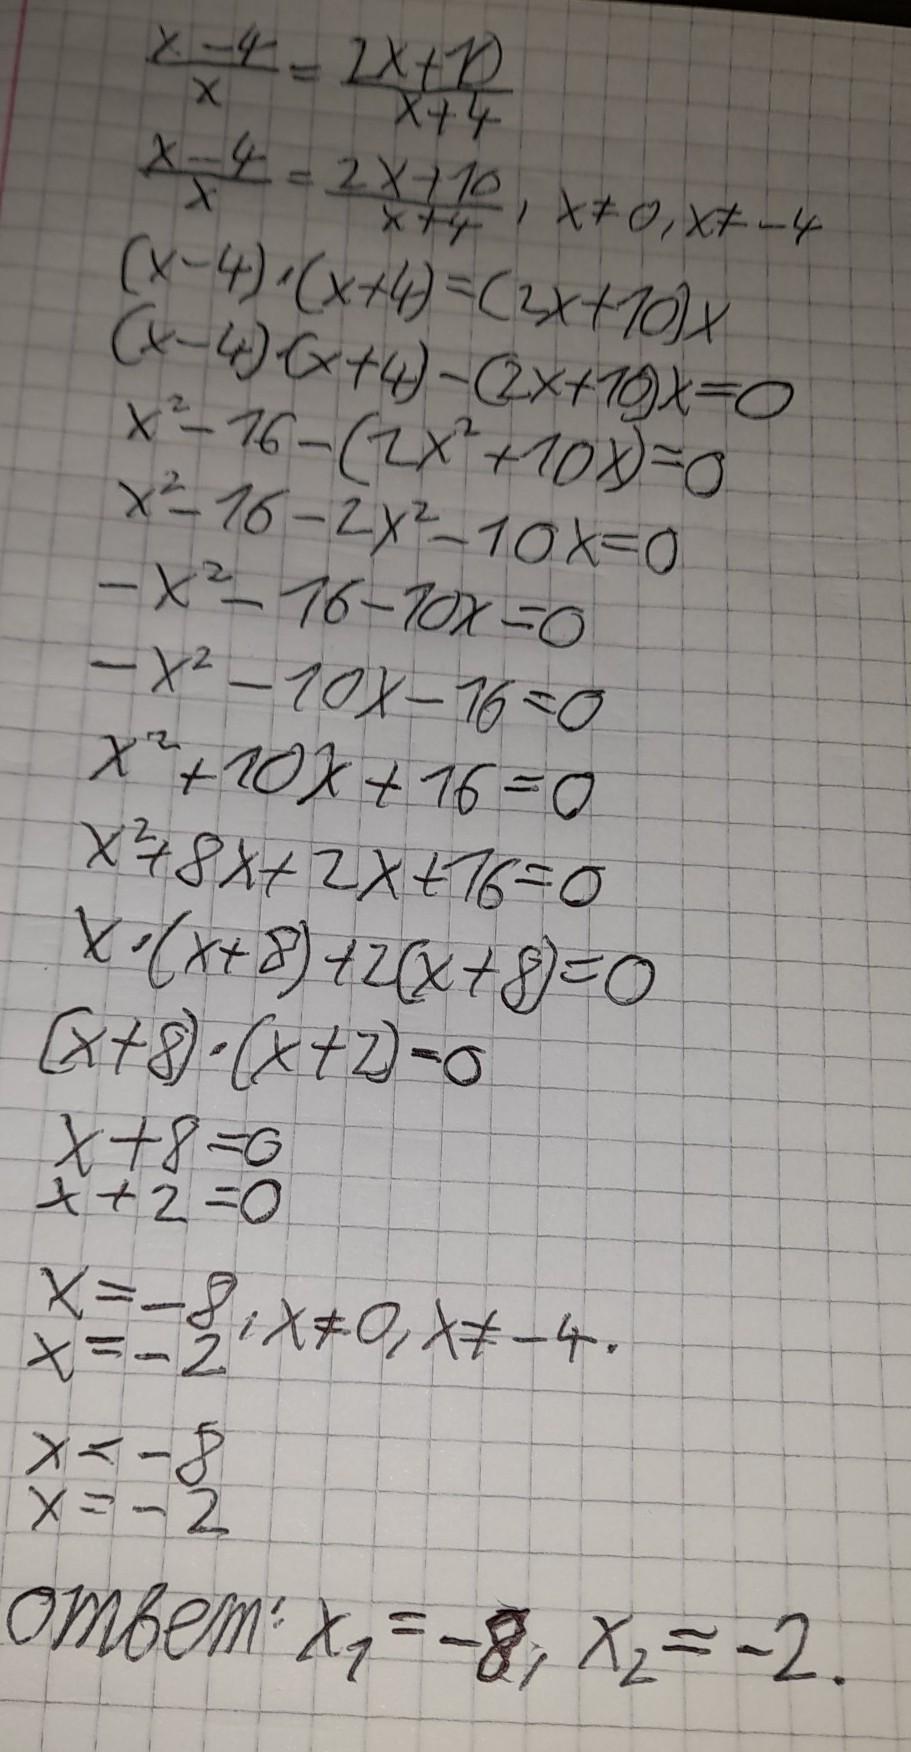 x-4/x = 2x+10/x+4
x-4/x = 2x+10/x+4, x≠0, x≠-4
(x-4)·(x+4)=(2x+10)x
(x-4)·(x+4)-(2x+10)x=0
x²-16-(2x²+10x)=0
x²-16-2x²-10x=0
-x²-16-10x=0
-x²-10x-16=0
x²+10x+16=0
x²+8x+2x+16=0
x·(x+8)+2(x+8)=0
(x+8)·(x+2)=0
x+8=0
x+2=0
x=-8
x=-2, x≠0, x≠-4.
x=-8
x=-2
ответ: x₁=-8; x₂=-2.